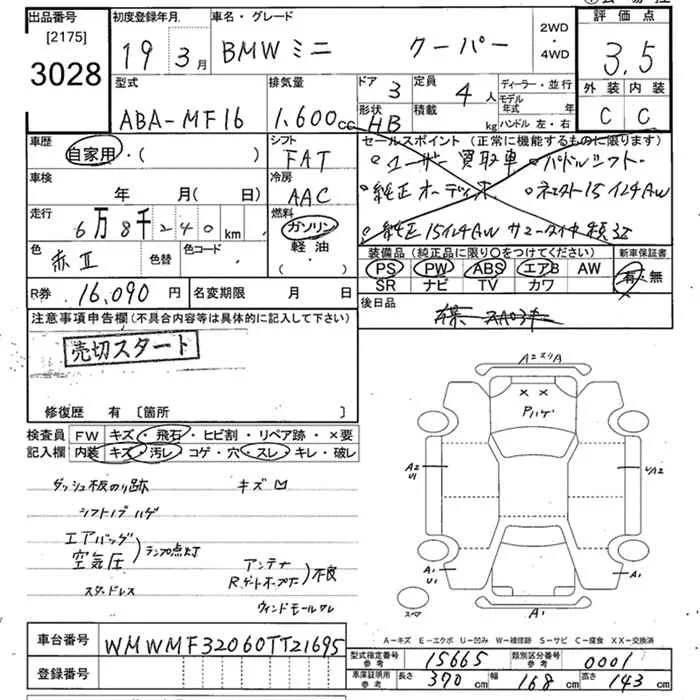 出品番号
[2175]
3028
初度登録年月
19年3月
車名・グレード
BMWミニ クーパー
2WD
・
4WD
評価点
3.5
外装 内装
C C
型式
ABA-MF16
排気量
1,600cc
ドア 3
形状
HB
定員 4人
積載 kg
ディーラー・並行
モデル年式 年
ハンドル 左・右
車歴
自家用・( )
シフト
FAT
車検
年 月(日)
冷房
AAC
走行
6万8千240km
燃料
ガソリン
軽油
( ・ )
色
赤II
色替
色コード
セールスポイント (正常に機能するものに限ります)
ユーザー買取車 ・パドルシフト
純正オーディオ
純正15インチAW
装備品 (純正品に限り○をつけてください)
PS PW ABS エアB AW
SR ナビ TV カワ
新車保証書
有・無
R券 16,090円
名変期限 月 日
後日品
注意事項申告欄(不具合内容等は具体的に記入して下さい)
売切スタート
修復歴 有 [箇所 ]
検査員記入欄
FW キズ・飛石・ヒビ割・リペア跡・×要
内装 キズ・汚レ・コゲ・穴・スレ・キレ・破レ
ダッシュ板のり跡 キズ凹
シフトノブハゲ
エアバッグ
空気圧
ランプ点灯
アンテナ
Rゲートオープナ
不良
スタッドレス
ウィンドモールワレ
A2スリA
××
Pハゲ
A2
U1
UA2
A1
U1
A1
A1
スペア
A-キズ E-エクボ U-凹み W-補修跡 S-サビ C-腐食 XX-交換済
車台番号
WMWMF32060TT21695
登録番号
型式指定番号
参考
15665
類別区分番号
参考
0001
車庫証明用
参考
長さ 370cm 幅 168cm 高さ 143cm